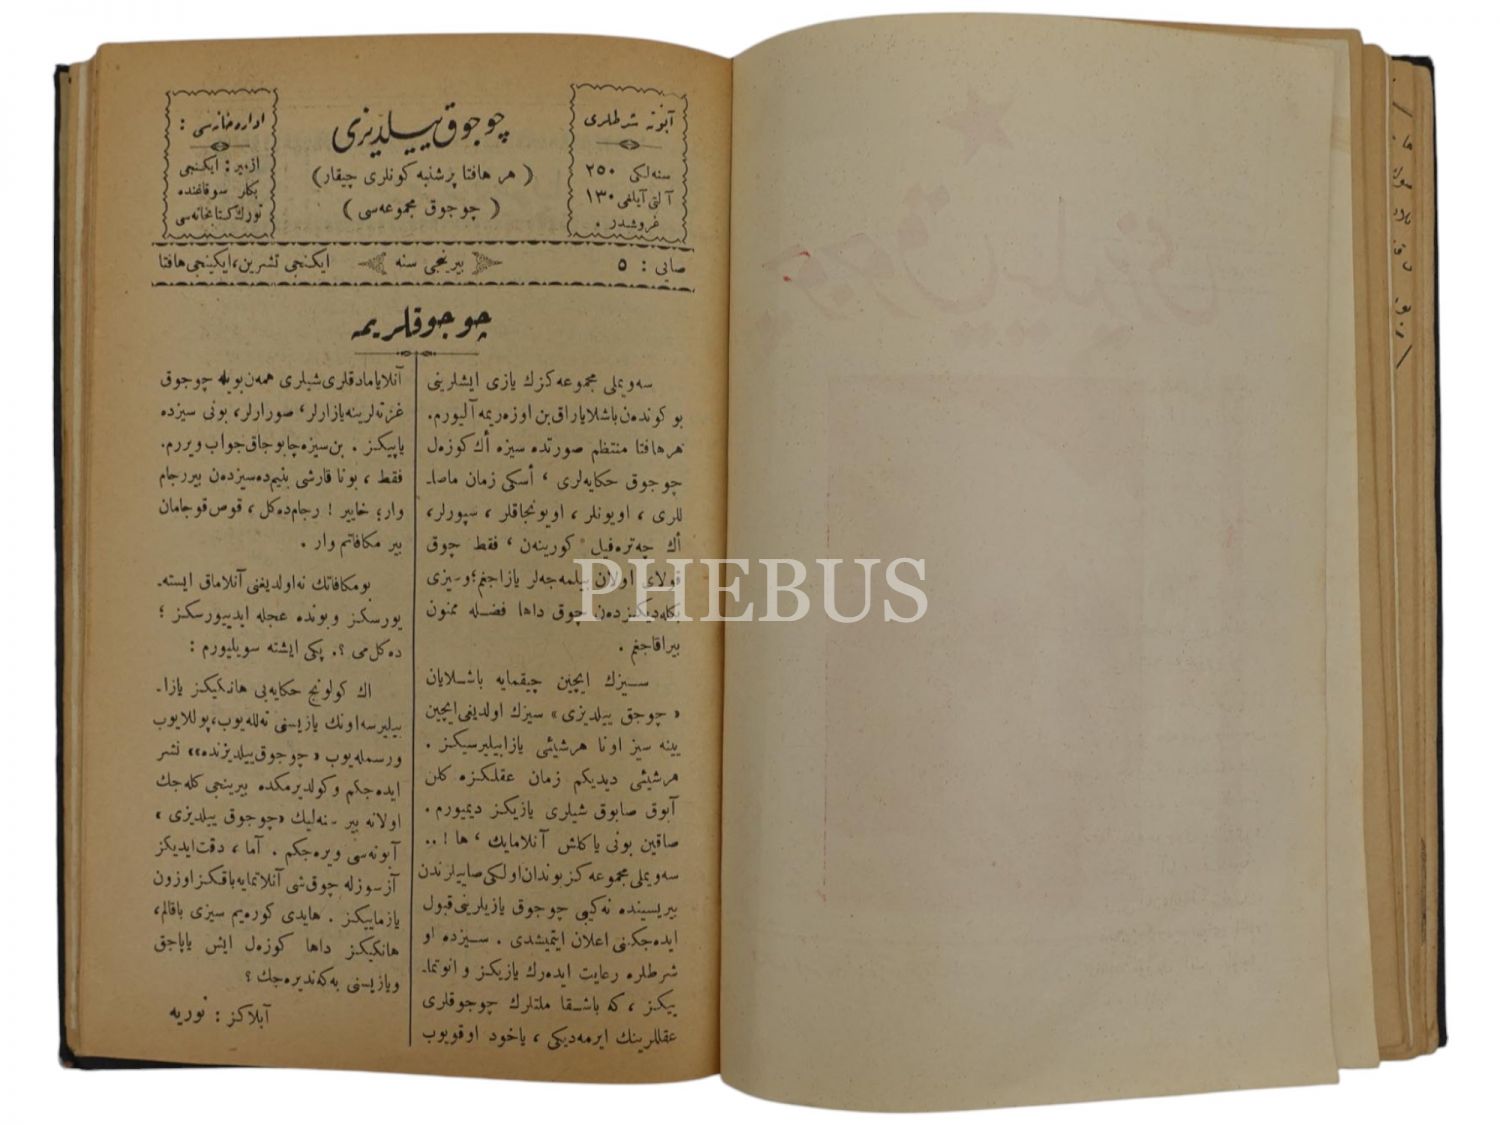 آبونه شرطلری
سنه لكی ۲۵۰
آلتی آیلغی ۱۳۰
غروشدر .
چوجوق ییلدیزی
( هر هافتا پرشنبه كونلری چیقار )
( چوجوق مجموعه سی )
اداره خانه سی :
ازمیر : ایكنجی
بكلر سوقاغنده
تورك كتابخانه سی
صایی : ۵
بیرنجی سنه
ایكنجی تشرین، ایكینجی هافتا
چوجوقلریمه
سه ویملی مجموعه كزك یازی ایشلرینی
بو كوندەن باشلایاراق بن اوزەریمه آلیورم.
هر هافتا منتظم صورتده سیزه أك كوزەل
چوجوق حكایه لری ، أسكی زمان ماصا-
للری ، اویونلر ، اویونجاقلر ، سپورلر،
أك چه ترەفیل كورینەن ، فقط چوق
قولای اولان بیلمه جه لر یازاجغم ؛ و سیزی
بكله دیكزدەن چوق داها فضله ممنون
بیراقاجغم .
سیزك ایچین چیقمایه باشلایان
« چوجق ییلدیزی » سیزك اولدیغی ایچین
یینه سیز اونا هر شیئی یازابیلیرسیكز .
هر شیئی دیدیكم زمان عقلكزه كلن
آبوق صابوق شیلری یازیكز دیمیورم .
صاقین بونی یا كلش آكلامایك ، ها ! ..
سه ویملی مجموعه كز بوندان اولكی صاییلرندن
بیریسینده نه كیبی چوجوق یازیلرینی قبول
ایده جكنی اعلان ایتمیشدی . سیزده او
شرطلره رعایت ایدەرك یازیكز و انوتما-
ییكز ، كه باشقا ملتلرك چوجوقلری
عقللرینك ایرمه دیكی ، یاخود اوقویوب
آنلایامادقلری شیلری همەن بویله چوجوق
غزته لرینه یازارلر ، صورارلر، بونی سیزده
یاپیكز . بن سیزه چابوجاق جواب ویررم.
فقط ، بونا قارشی بنیم ده سیزدەن بیر رجام
وار؛ خاییر ! رجام ده كل ، قوص قوجامان
بیر مكافاتم وار .
بو مكافاتك نه اولدیغنی آنلاماق ایسته-
یورسكز و بونده عجله ایدییورسكز ؛
ده كل می ؟. پكی ایشته سویلیورم :
اك كولونج حكایه یی هانكیكز یازا-
بیلیرسه اونك یازیسنی ته لله یوب، پوللایوب
و رسمله یوب « چوجوق ییلدیزنده » نشر
ایده جكم و كولدیرمكده بیرینجی كله جك
اولانه بیر سنه لیك « چوجوق ییلدیزی »
آبونه سی ویره جكم . آما ، دقت ایدیكز
آز سوزله چوق شی آنلاتمایه باقكز اوزون
یازماییكز . هایدی كورەیم سیزی باقالم،
هانكیكز داها كوزەل ایش یاپاجق
و یازیسنی به كه ندیره جك ؟
آبلاكز : نوریه
PHEBUS